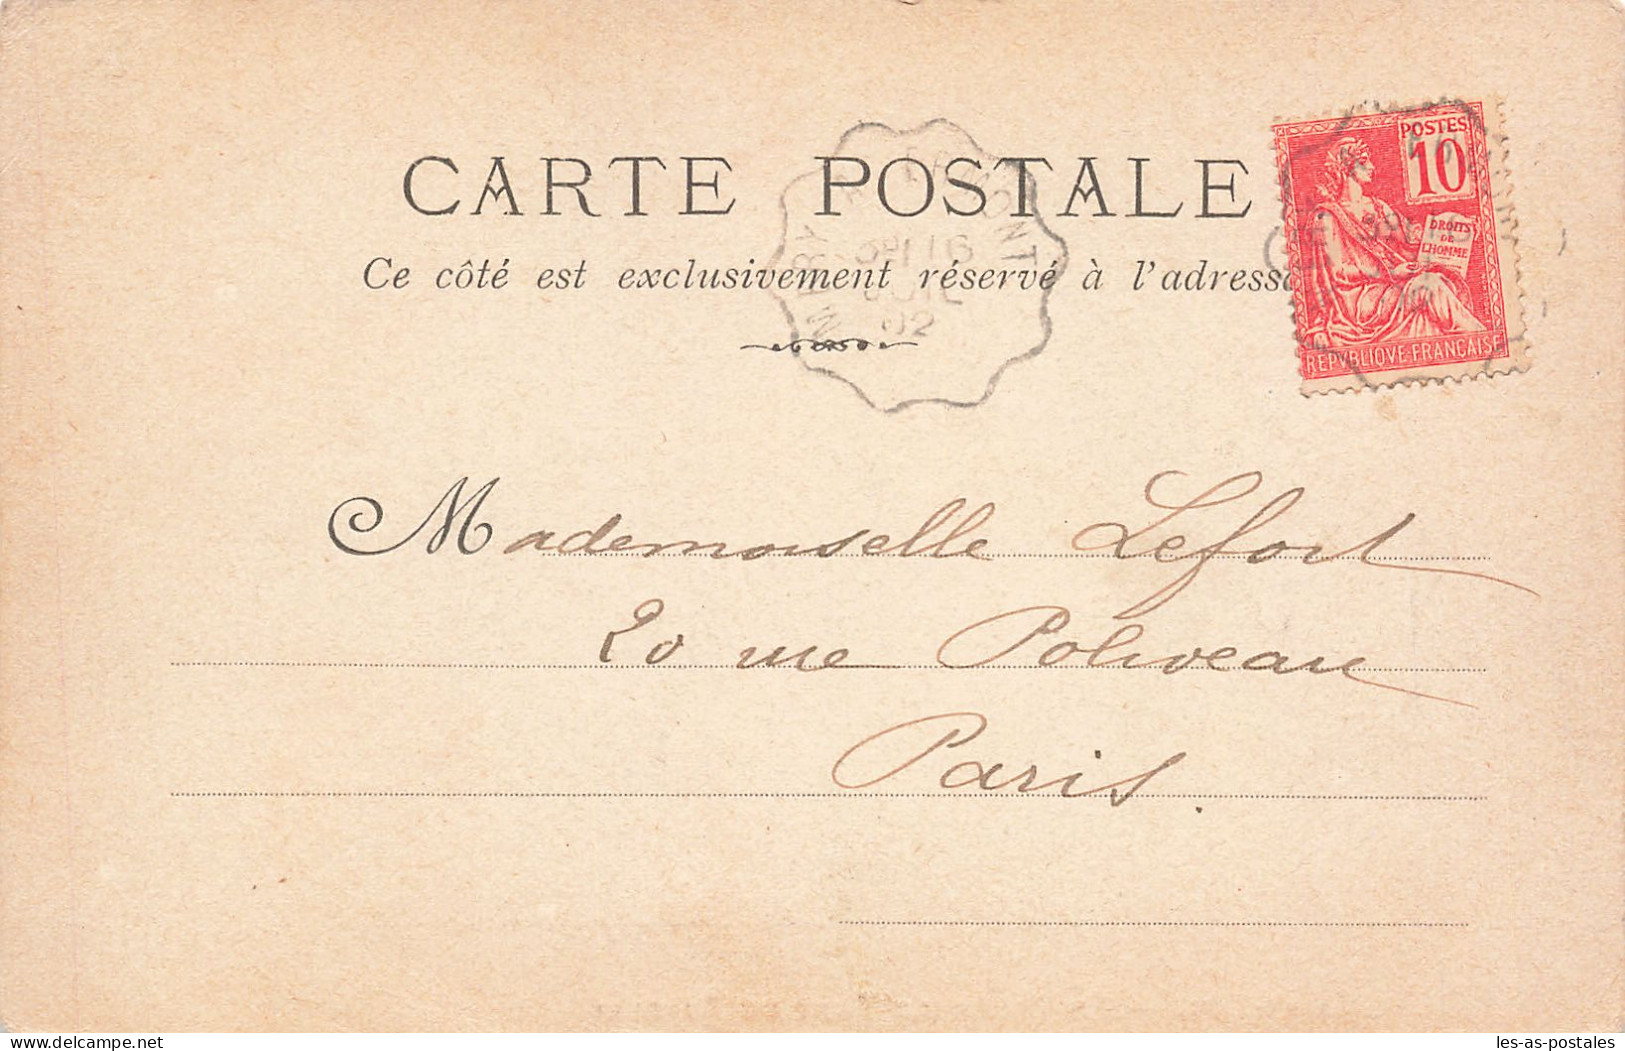 CARTE POSTALE
POSTES
10
DROITS
DE
L'HOMME
REPVBLIQVE FRANÇAISE
Ce côté est exclusivement réservé à l'adresse
02
Mademoiselle Lefort
20 rue Poliveau
Paris.
les-as-postales